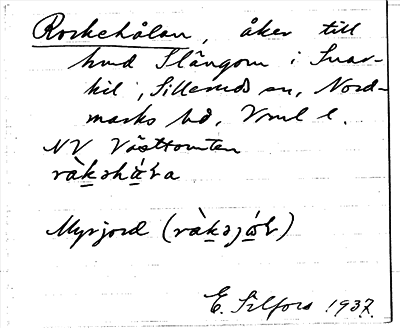 Rockehålan, åker till
hmd Slängom i Svar-
kil, Sillerud sn, Nord-
marks hd, Vrml l.
NV Västtomten
ràk̲əhɑ́ɫ̲a
Myrjord (ràk̲əjɷ́ɽ)
E. Silfors 1937.